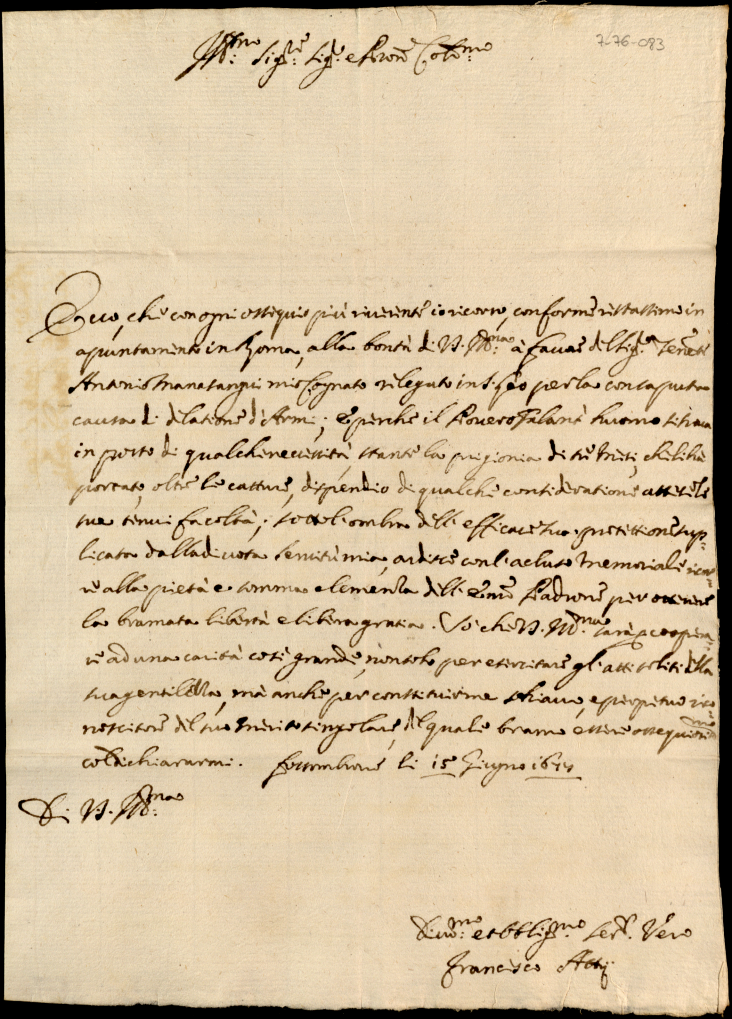 7-76-083
Ill:mo Sig:re Sig:r e Pron Col:mo
Ecco, che con ogni ossequio più riverente io ricorro, conforme restassimo in
apuntamento in Roma, alla bontà di V.S. Ill:ma à favor del Sig:r Tenente
Antonio mio Cognato rilegato in S. Leo per la
causa di dilatione d'Armi; e perche il povero galant'huomo si trova
in posto di qualche necessità stante la prigionia di trè Mesi, che li hà
portato, oltre le catture, dispendio di qualche consideratione attese le
sue tenui facoltà; sotto l'ombra dell'efficace sua protettione sup-
licata dalla divota servitù mia, ardisce con l'acluso Memoriale
alla pietà e somma clemenza dell'Em:o Padrone per ottenere
la bramata libertà e libera gratia. Sò che V.S. Ill:ma sarà p coopera-
re ad una carità così grande, non solo per esercitare gl'atti soliti della
sua gentilezza, mà anche per constituirme schiavo, e perpetuo
noscitore del suo merito singolare, del quale bramo essere ossequiosis:mo
col dichiararmi. Fossombrone li 15 Giugno
Di V.S. Ill:ma
Divo:mo et Obblig:mo Ser:re Vero
Francesco Atti